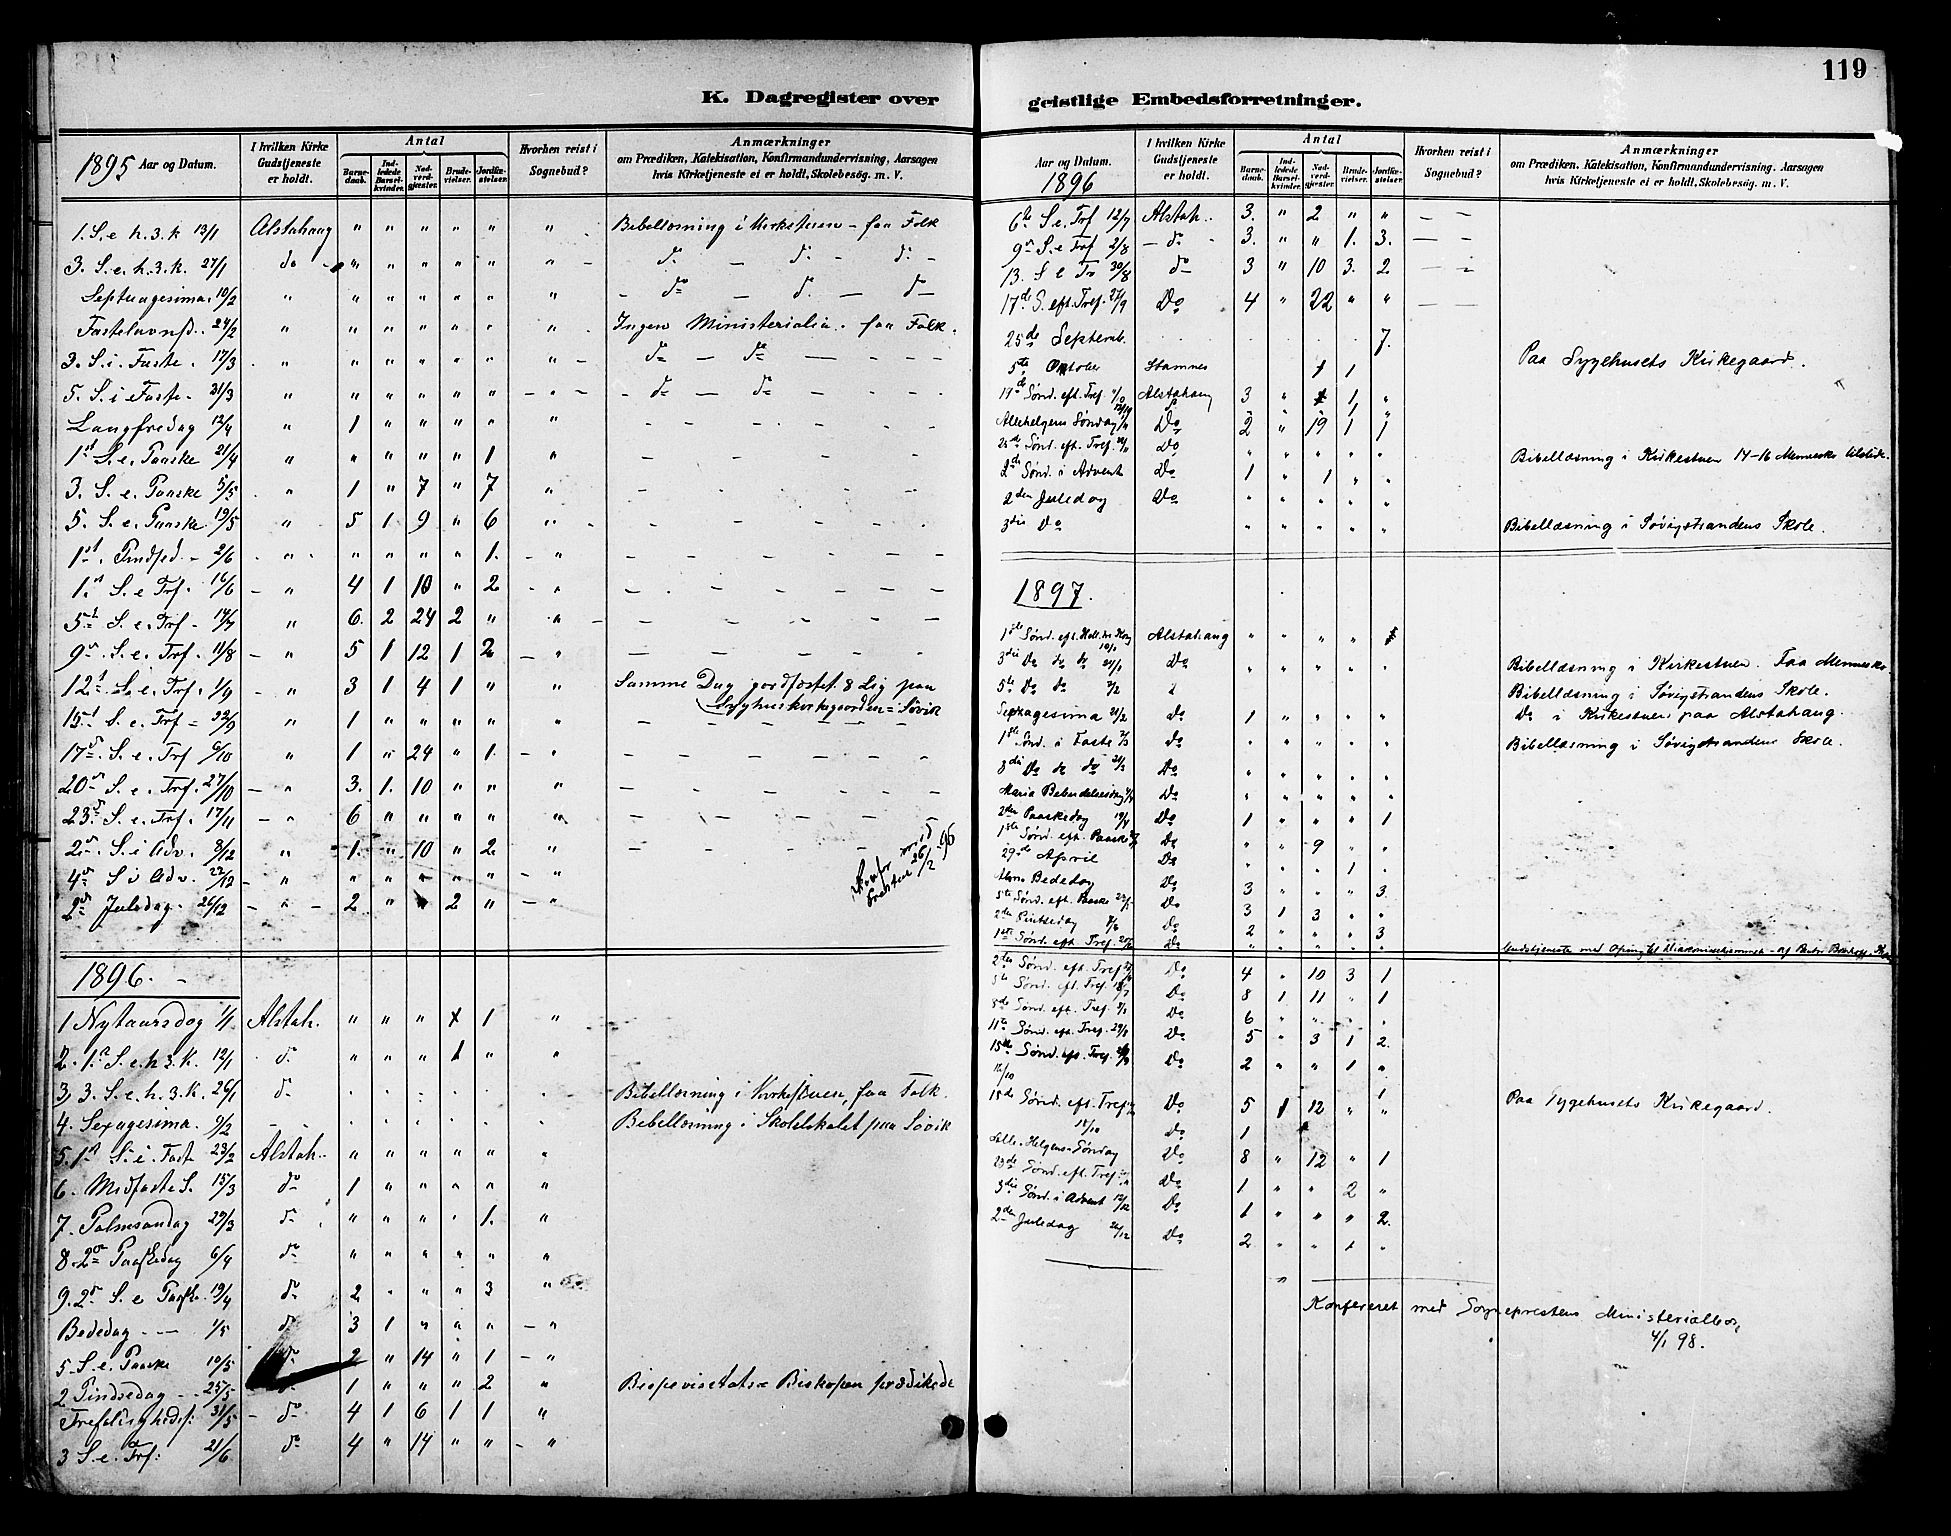 119
K. Dagregister over geistlige Embedsforretninger.
1895 Aar og Datum. | I hvilken Kirke Gudstjeneste er holdt. | Antal | Barnedaab. | Indledede Barselkvinder. | Nadverdgjester. | Brudevielser. | Jordfæstelser. | Hvorhen reist i Sognebud? | Anmærkninger om Prædiken, Katekisation, Konfirmandundervisning, Aarsagen hvis Kirketjeneste ei er holdt, Skolebesøg. m. V.
1. S. e. h. 3. k. 13/1 Alstahaug " " " " " " Bibellæsning i Kirkstuen - faa Folk
3. S. e. h. 3. K. 27/1 do " " " " " " do - do - do -
Septuagesima. 10/2 " " " " " " " - do - do - do
Fastelavnsd. 24/2 " " " " " " " Ingen Ministerialia. faa Folk.
3. S. i. Faste. 17/3 " " " " " " " do - do - - -
5. S. i Faste. 31/3 " " " " " " - do - do - - -
Langfredag 12/4 " 1 " " " " "
1st S. e. Paaske 21/4 " " " " " 1
3. S. e. Paaske 5/5 " 1 " 7 " 7 "
5. S. e. Paaske 19/5 " 5 1 9 " 6 "
1st. Pindsd. - 2/6 " " " " " 1. "
1st S. e Trf. 16/6 " 4 1 10 " 2 "
5te S. e. Trf - 14/7 " 6. 2 24 2 " "
9de S. e. Trf. 11/8 " 5 1 12 1 2 "
12te S. e. Trf. 1/9 " 3 1 4 1 " " Samme Dag jordfæstet 8 Lig paa
(Syghuskirkegaarden = Søvik
15te S. e. Trf - 22/9 " 1 " " " " "
17de S. e. Trf 6/10 " 1 " 24 " 1. "
20de S. e. Trf. 27/10 " 3. 1. 10 " " "
23de S. e. Trf. 17/11 " 6 " " " " "
2den S. i Adv. 8/12 " 1. " 10 " 2. "
4de S. i Adv. 22/12 " " " " " " "
2den Juledag. 26/12 " 2 " " 2 " "
26/2 96
1896.
1 Nytaarsdag 1/1 Alstah. " " " 1 "
2. 1st S. e. h. 3. K. 12/1 do " " " 1 " "
3, 3. S. e. h. 3. K. 26/1 do Bibellæsning i Kirkestuen, faa Folk.
4. Sexagesima. 9/2 Bibellæsning i Skolelokalet paa Søvik
5. 1st S. i Fast 23/2 Alstah. " " " " " "
6. Midfaste S. 15/3 do 1 " " " " "
7. Palmsøndag 29/3 do " " " " 1. "
8. 2den Paaskedag 6/4 do " " " " " "
9. 2den S. e Paaske. 19/4 do 2 " " " 3 "
Bededag - - 1/5 do 3 1 " " " "
5 S. e. Paaske 10/5 do 2 " 14 " 1 "
2 Pindsedag - - 25/5 1 " " " 2 " Bispevisetats = Biskopen prædikede
Trefoligheds: 31/5 do 4 1 6 1 1 "
3 S. e. Trf: 21/6 do 4 " 14 " " "
Aar og Datum. 1896 | I hvilken Kirke Gudstjeneste er holdt. | Antal | Barnedaab. | Indledede Barselkvinder. | Nadverdgjester. | Brudevielser. | Jordfæstelser. | Hvorhen reist i Sognebud? | Anmærkninger om Prædiken, Katekisation, Konfirmandundervisning, Aarsagen hvis Kirketjeneste ei er holdt, Skolebesøg. m. V.
6te S. e. Trf 12/7 Alstah. 3. " 2 " " - -
9de S. e Trf 2/8 - do 3. " " 1. 3. - -
13. S e Tr 30/8 do 3 " 10 3. 2 - -
17de S. eft. Tref. 27/9 Do 4 " 22 " " - -
25de Septemb. 7. Paa Sygehusets Kirkegaard.
5te Oktober Stamnes 1
Sønd. eft. Tref. Alstahaug 3 " 1, "
Allehelgens Søndag Do 2 " 19 1 1
Sønd. eft. Tref. Do " " " " " Bibellæsning i Kirkestuen 14-16 Mennesker tilstede.
2den Sønd. i Advent Do 1 " 1 " "
2den Juledag Do
3die Do " " " " " Bibellæsning i Søvigstrandens Skole.
1897.
1ste Sønd. eft. Hell. tre Kong 10/1 Alstahaug " " " "
3die Do do do 24/1 Do " " " " " Bibellæsning i Kirkestuen. Faa Mennesker
5te Do do 7/2 Bibellæsning i Søvigstrandens Skole.
Sexagesima 21/2 Do 1 " " " " Do i Kirkestuen paa Alstahaug.
1ste Sønd. i Faste 7/3 Do " " " " " Bibellæsning i Søvigstrandens Skole.
3die Do do do 21/3 Do " " " " "
Maria Bebudelsesdag Do " " " " "
2den Paaskedag 19/4 Do 1 " " " 1
1ste Sønd. eft. Paaske Do " " 9 " "
29de April Do " " " 1. "
Alm. Bededag Do 3 " " " 3.
5te Sønd. eft. Paaske 23/5 Do 3 1 3 " "
2den Pintsedag 7/6 Do 2 " " " 3
1ste Sønd. eft. Tref. 20/6 Do " " " " " Gudstjeneste med
2den Sønd. eft. Tref. Do 4 " 10 3 1
5te Sønd. eft. Tref. 18/7 Do 8 1 11 " 1
8de Sønd. eft. Tref. 8/8 Do 6 " " " "
11te Sønd. eft. Tref. 29/8 Do 5 " 3 1 2.
15de Sønd. eft. Tref. Do 2 " " 1 "
12/10 1 Paa Sygehusets Kirkegaard.
18de Sønd. eft. Tref. Do 5 1 12 " "
18/10 Do 1
Alle-Helgens-Søndag Do 8 " 12 " 1
23de Sønd. eft. Tref. Do 1 " " 2 "
3die Sønd. i Advent 12/12 Do 1 " " " 2.
2den Juledag 26/12 Do 2 " " 1 "
Konfereret med Sogneprestens Ministerialbog
4/1 98.